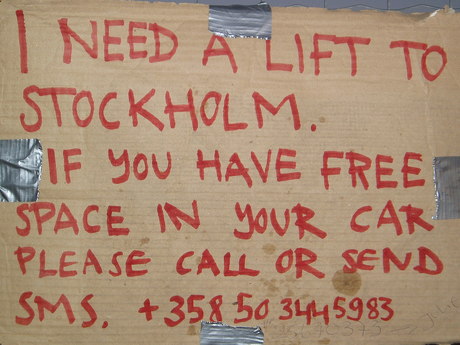 I NEED A LIFT TO
STOCKHOLM.
IF YOU HAVE FREE
SPACE IN YOUR CAR
PLEASE CALL OR SEND
SMS. +358 50 3445983